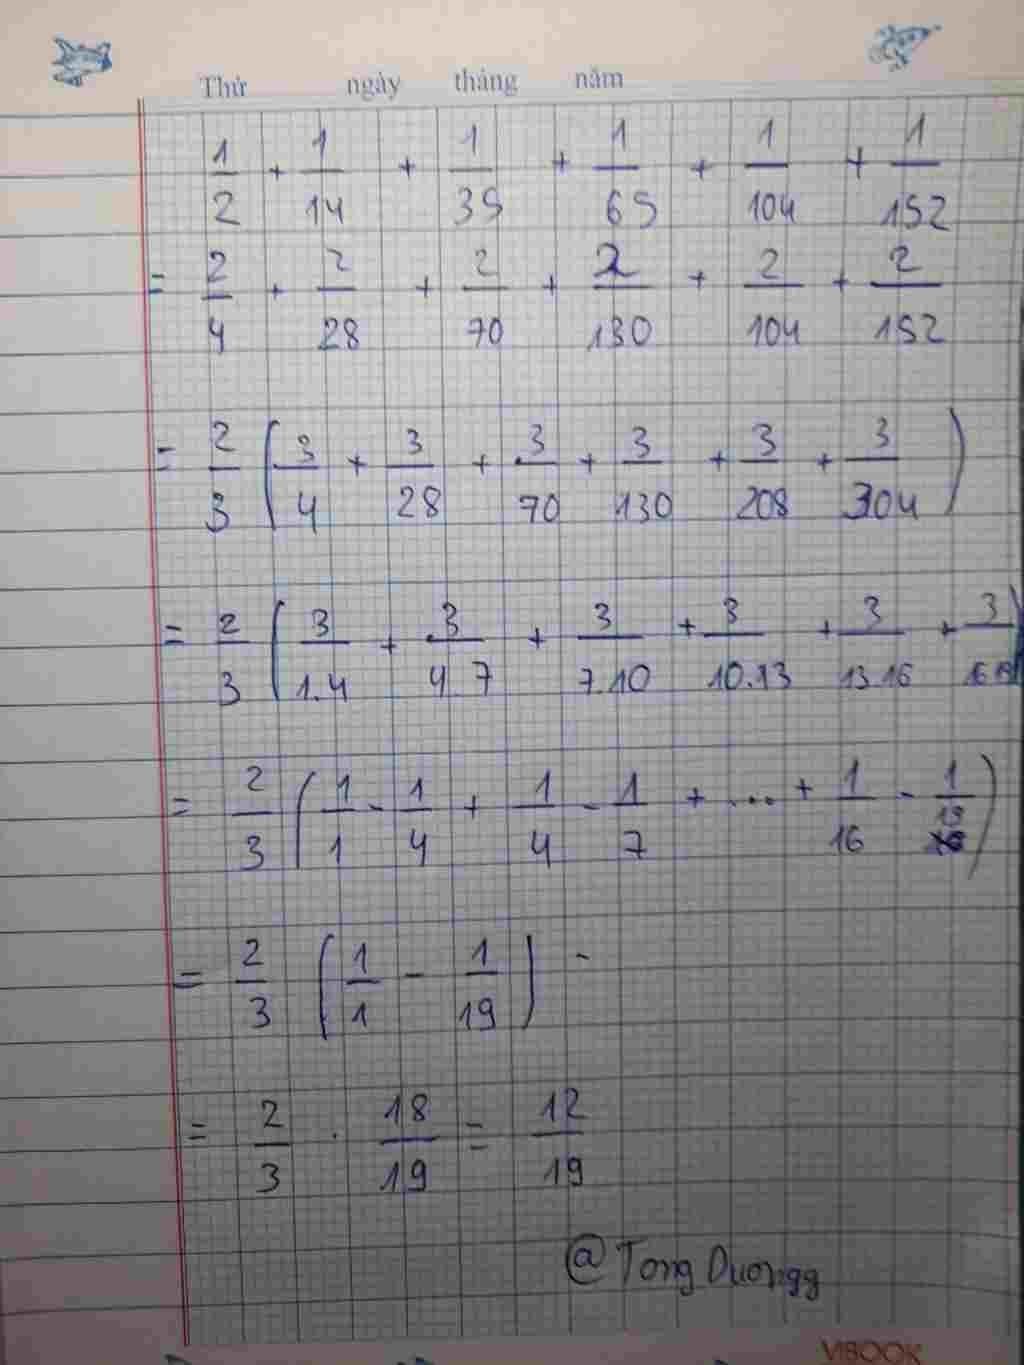 Thứ ngày tháng năm
1/2 + 1/14 + 1/35 + 1/65 + 1/104 + 1/152
= 2/4 + 2/28 + 2/70 + 2/130 + 2/104 + 2/152
= 2/3 ( 3/4 + 3/28 + 3/70 + 3/130 + 3/208 + 3/304 )
= 2/3 ( 3/1.4 + 3/4.7 + 3/7.10 + 3/10.13 + 3/13.16 + 3/16.19 )
= 2/3 ( 1/1 - 1/4 + 1/4 - 1/7 + ... + 1/16 - 1/19 )
= 2/3 ( 1/1 - 1/19 ) -
= 2/3 . 18/19 = 12/19
@Tong Duongg
VIBOOK